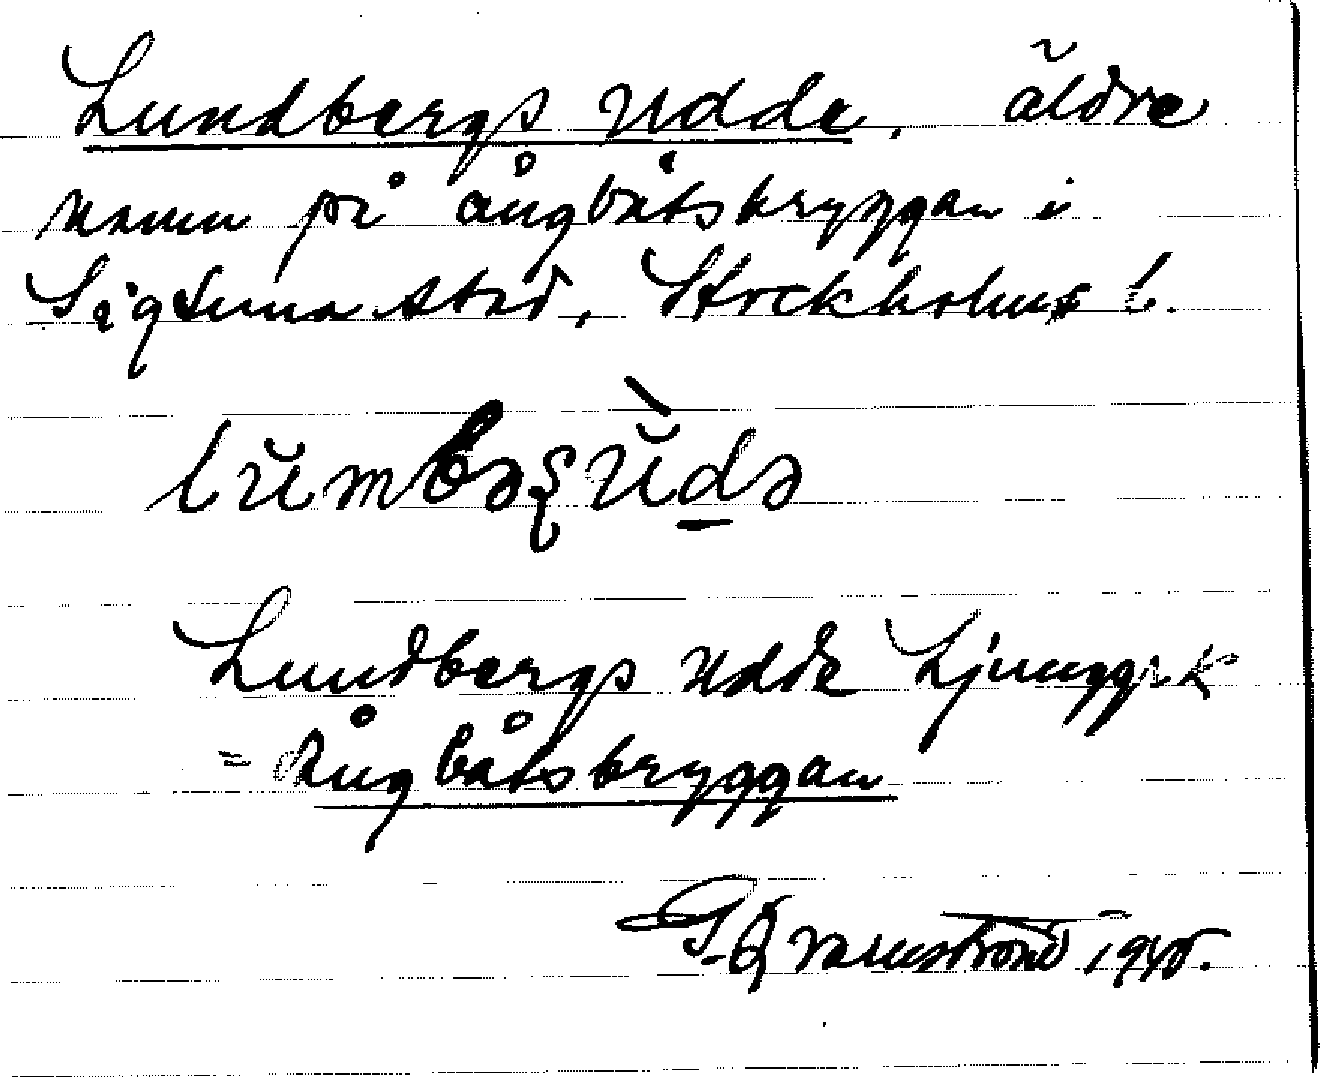 Lundbergs udde, äldre
namn på ångbåtsbryggan i
Sigtuna stad, Stockholms l.
Lundbergs udde Ljunggrk
= Ångbåtsbryggan
G. Qvarnström 1940.